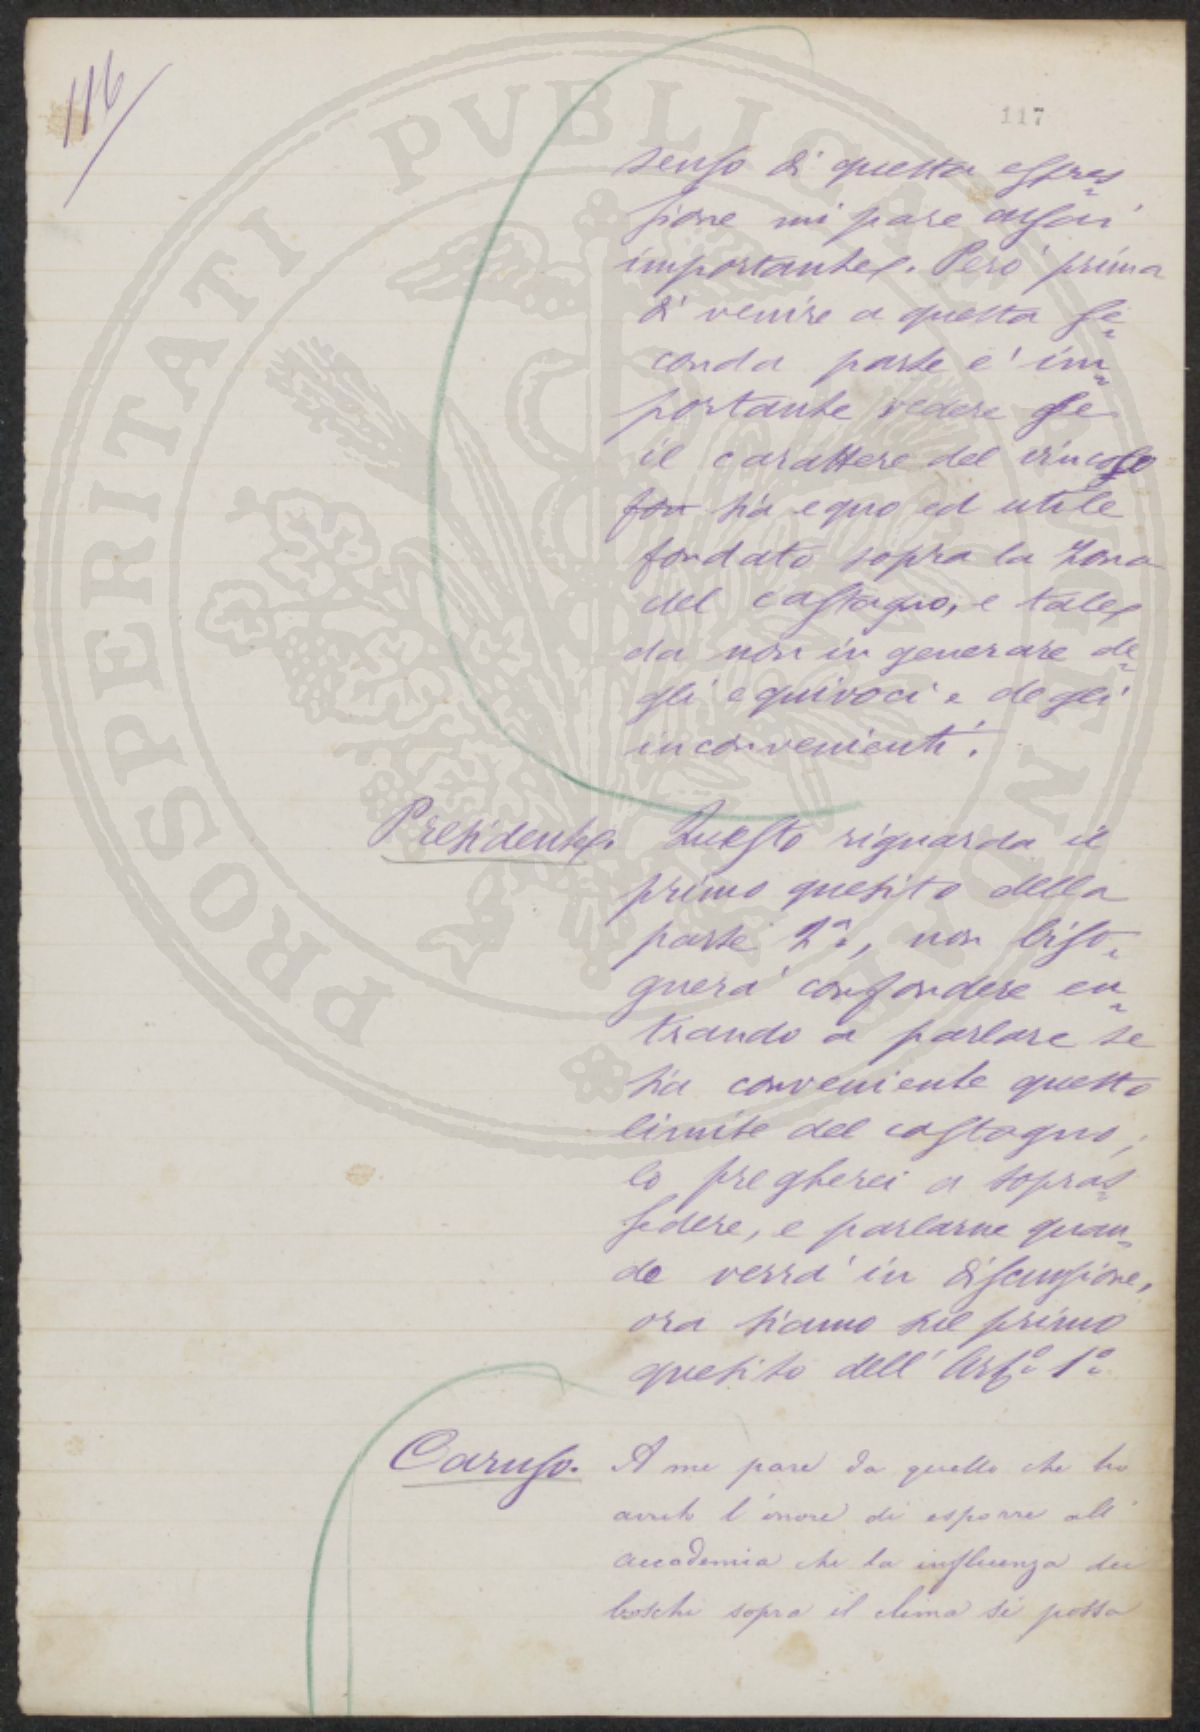 116
117
senso di questa espres-
sione mi pare assai
importante. Però prima
di venire a questa se-
conda parte e' im-
portante vedere se
il carattere del vincolo
fon sia equo ed utile
fondato sopra la zona
del castagno, e tale
da non ingenerare de-
gli equivoci e degli
inconvenienti.
Presidente. Questo riguarda il
primo quesito della
parte 2ª, non biso-
gnerà confondere en-
trando a parlare se
sia conveniente questo
limite del castagno;
lo pregherei a sopras-
sedere, e parlarne quan-
do verrà in discussione,
ora siamo sul primo
quesito dell'Artº 1º
Caruso. A me pare da quello che ho
avuto l'onore di esporre all'
accademia che la influenza dei
boschi sopra il clima si possa
PROSPERITATI PVBLICAE